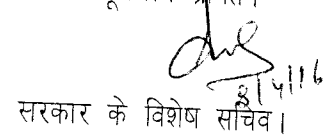 8/4/16
सरकार के विशेष सचिव।